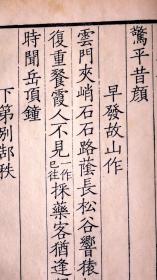 驚平昔顏
早發故山作
雲門夾峭石石路蔭長松谷響猿
復重餐霞人不見一作已往採藥客猶逢
時聞岳頂鐘
下第別郜秩